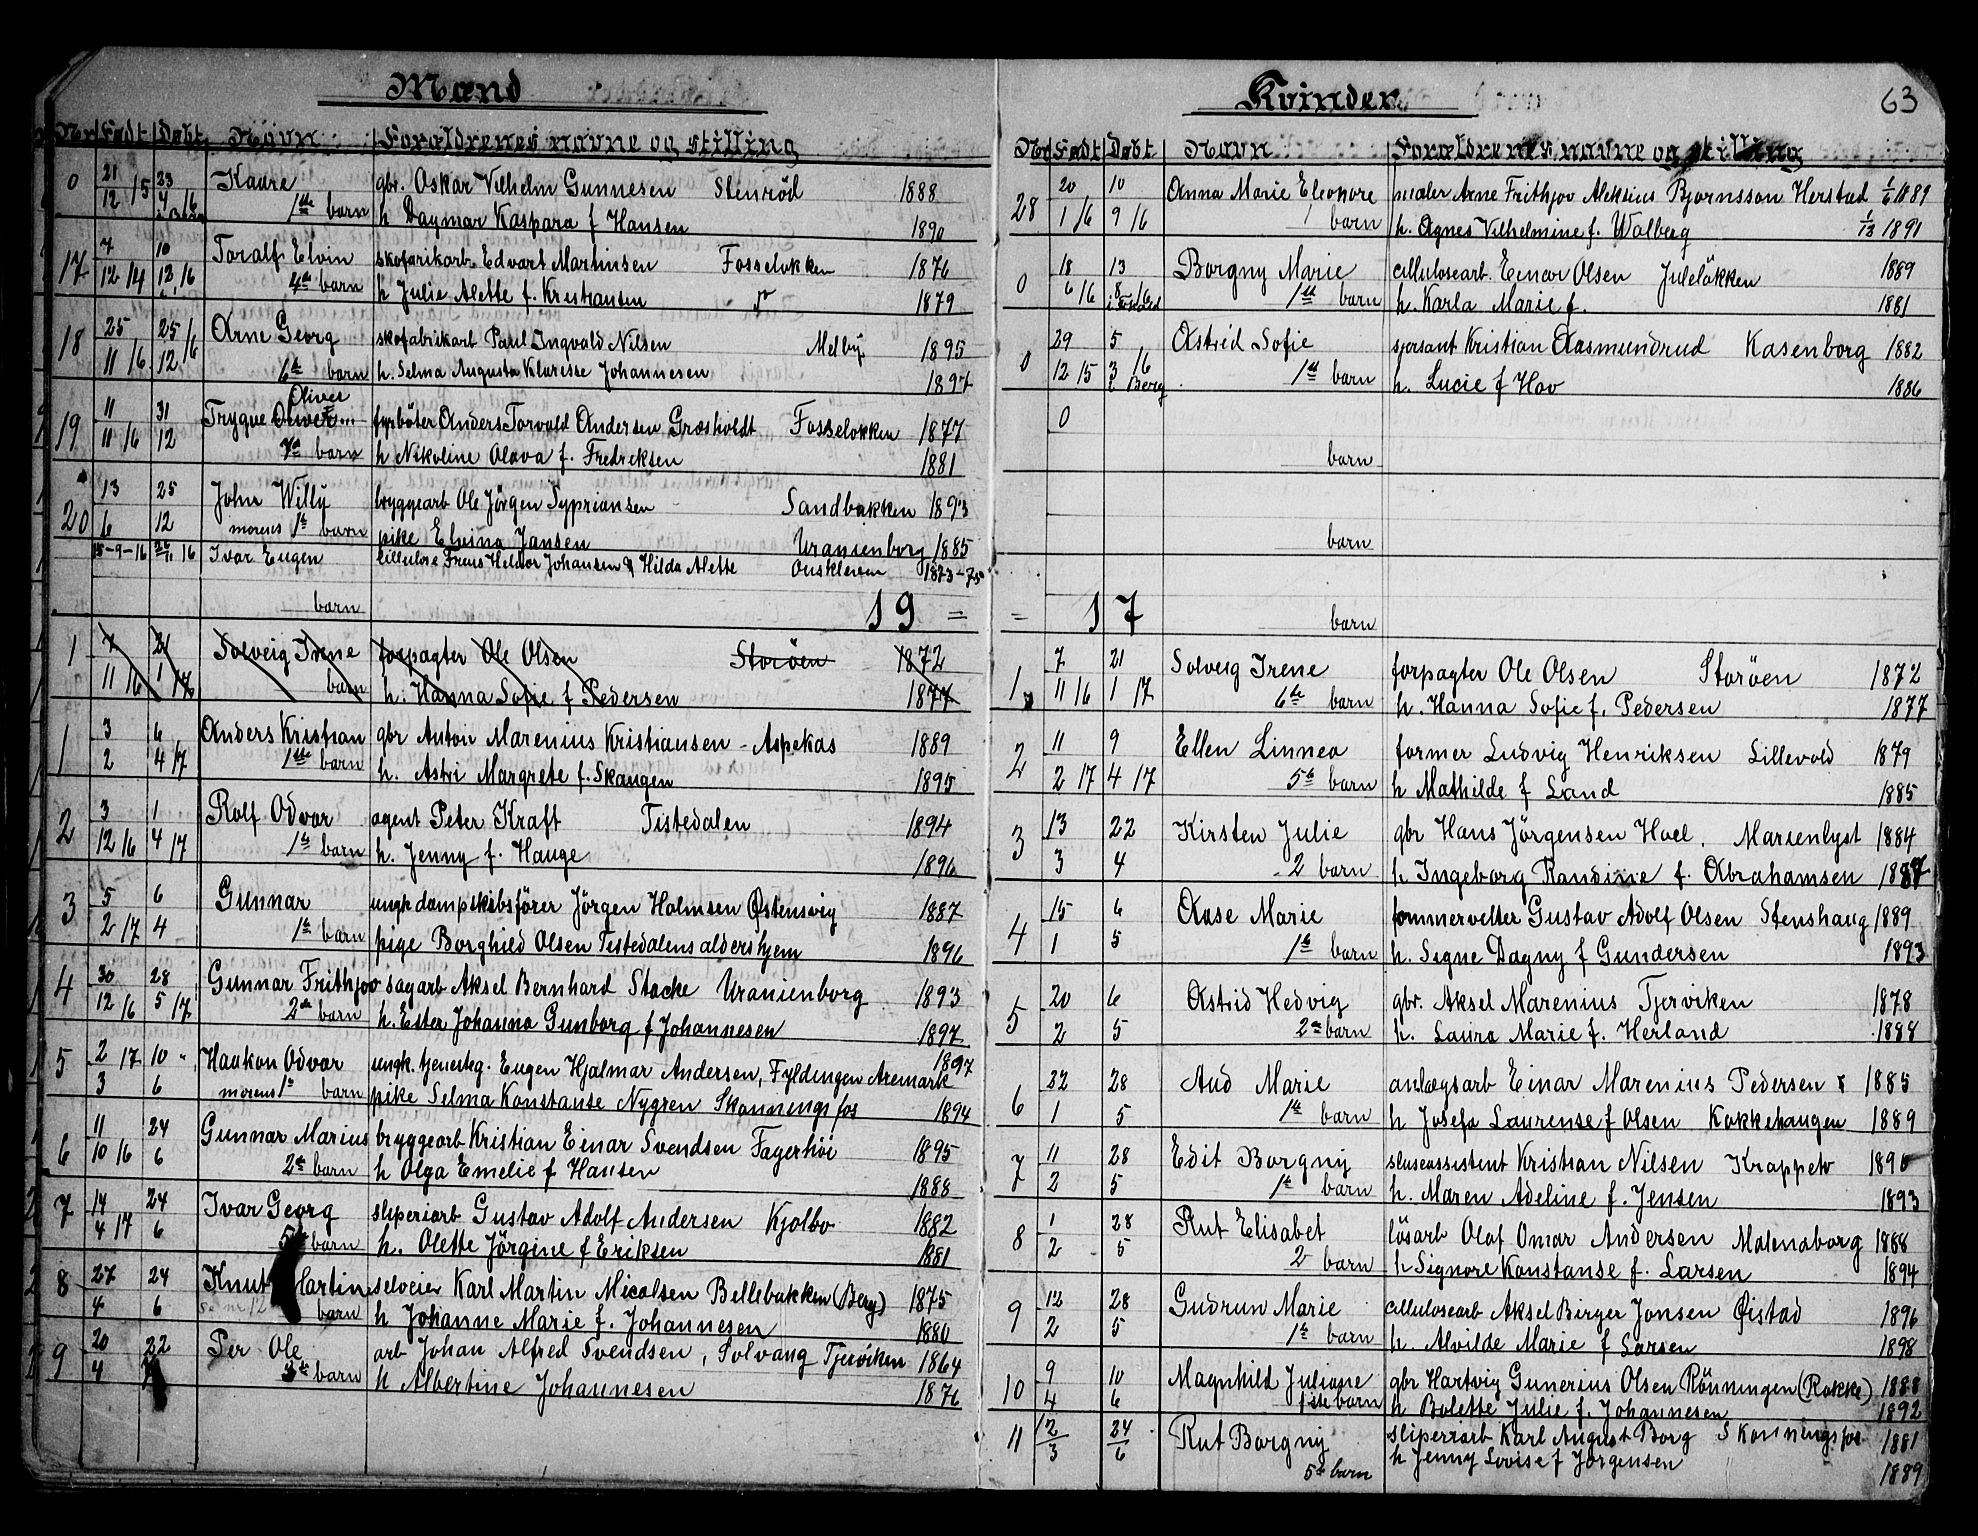 Mænd
Nr Født Døbt Navn Forældrenes navne og stilling
0 21 23 Kaare gbr. Oskar Vilhelm Gunnesen Stenrød 1888
12 15 4 16 i Berg 1ste barn h Dagmar Kaspara f Hansen 1890
17 7 10 Toralf Elvin skofarikarb Edvart Martinsen Fosseløkken 1876
12 14 12 16 4de barn h Julie Alette f. Kristiansen 1879
18 25 25 Arne Georg skofabrikarb Paul Ingvald Nilsen Melby 1895
11 16 12 16 6te barn h. Selma Augusta Klaresse Johannesen 1897
Oliver
19 11 31 Trygve fyrböter Anders Torvald Andersen Grosholdt Fosselokken 1877
11 16 12 7de barn h Nikoline Olava f. Fredriksen 1881
20 13 25 John Willy bryggearb Ole Jörgen Sypriansen Sandbakken 1893
6 12 morens 1te barn pike Elvina Jansen Uranienborg 1885
15-9-16 26/11 16 Ivar Eugen cillulose Frans Heldor Johansen & Hilda Alette 1873-75
barn 19 =
1 7 21 Solveig Irene forpagter Ole Olsen Storöen 1872
11 16 1 17 barn h. Hanna Sofie f Pedersen 1877
1 3 6 Anders Kristian gbr Anton Marenius Kristiansen - Aspekas 1889
2 4 17 1ste barn h. Astri Margrete f. Skangen 1895
2 3 1 Rolf Odvar agent Peter Kraft Tistedalen 1894
12 16 4 17 1te barn h. Jenny f. Hauge 1896
3 5 6 Gunnar ungk dampskibsfører Jörgen Holmsen Østensvig 1887
2 17 4 1te barn pige Borghild Olsen Tistedalens aldershjem 1896
4 30 28 Gunnar Frithjov sagarb Aksel Bernhard Stacke Uranienborg 1893
12 16 5 17 2de barn h. Ester Johanna Gunborg f Johannesen 1897
5 2 17 10 " Haakon Odvar ungk. tjenesteg. Eugen Hjalmar Andersen, Fyldingen Aremark 1897
3 6 morens 1te barn pike Selma Konstanse Nygren Skonningsfos 1894
6 11 24 Gunnar Marius bryggearb Kristian Einar Svendsen Fagerhöi 1895
10 16 6 2de barn h Olga Emelie f Hansen 1888
7 14 24 Ivar Georg sliperiarb Gustav Adolf Andersen Kjølbo 1882
4 17 6 5te barn h. Olette Jörgine f Eriksen 1881
8 27 24 Knut Martin selveier Karl Martin Nicolsen Bellebakken (Berg) 1875
4 6 se nr 12 barn h Johanne Marie f. Johannesen 1880
9 20 22 Per Ole arb Johan Alfred Svendsen, Solvang Tjerviken 1864
4 3de barn h Albertine Johannesen 1876
Kvinder 63
Nr Født Døbt Navn Forældrenes navne og stilling
28 20 10 Anna Marie Eleonore maler Arne Frithjov Aleksius Bjornsson Herstad 1/6 1889
1 16 9 16 1 barn h. Agnes Vilhelmine f. Walberg 1/12 1891
0 18 13 Borgny Marie cellulosearb. Einar Olsen Juleløkken 1889
6 16 8 16 1ste barn h. Karla Marie f. 1881
0 29 5 Astrid Sofie sjersant Kristian Aasmundrud Kasenborg 1882
12 15 3 16 i Berg 1ste barn h. Lucie f Hov 1886
0
barn
barn
= 17 barn
1 7 21 Solveig Irene forpagter Ole Olsen Storøen 1872
11 16 1 17 6te barn h. Hanna Sofie f. Pedersen 1877
2 11 9 Ellen Linnea former Ludvig Henriksen Lillevold 1879
2 17 4 17 5te barn h Mathilde f Land 1885
3 13 22 Kirsten Julie gbr Hans Jörgensen Hoel. Marienlyst 1884
3 4 2 barn h Ingeborg Randine f. Abrahamsen 1887
4 15 6 Aase Marie Gustav Adolf Olsen Stenshaug 1889
1 5 1te barn h. Signe Dagny f Gundersen 1893
5 20 6 Astrid Hedvig gbr. Aksel Marenius Tjerviken 1878
2 5 2de barn h. Laura Marie f. Herland 1888
6 22 28 Aud Marie anlægsarb Einar Marenius Pedersen 1885
1 5 1te barn h Josefa Laurense f Olsen Kokkehaugen 1889
7 11 28 Edit Borgny sluseassistent Kristian Nilsen Krappeto 1890
2 5 1te barn h. Maren Adeline f. Jensen 1893
8 1 28 Rut Elisabet lösarb Olaf Omar Andersen Malenaborg 1888
2 5 2 barn h Signore Konstanse f. Larsen 1894
9 12 28 Gudrun Marie cellulosearb Aksel Birger Jonsen Øistad 1896
2 5 1te barn h. Alvilde Marie f Larsen 1898
10 9 10 Magnhild Juliane gbr Hartvig Gunerius Olsen Rönningen (Rokke) 1888
4 6 1ste barn h Bolette Julie f. Johannesen 1892
11 12 24 Rut Borgny sliperiarb Karl August Borg Skonningsfos 1881
3 6 5te barn h Jenny Lovise f Jörgensen 1889